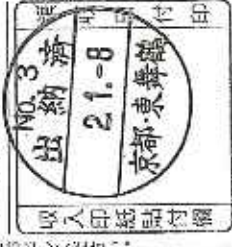 領収日付印
No. 3
出納済
21.-8
京都·東舞鶴
収入印紙貼付欄